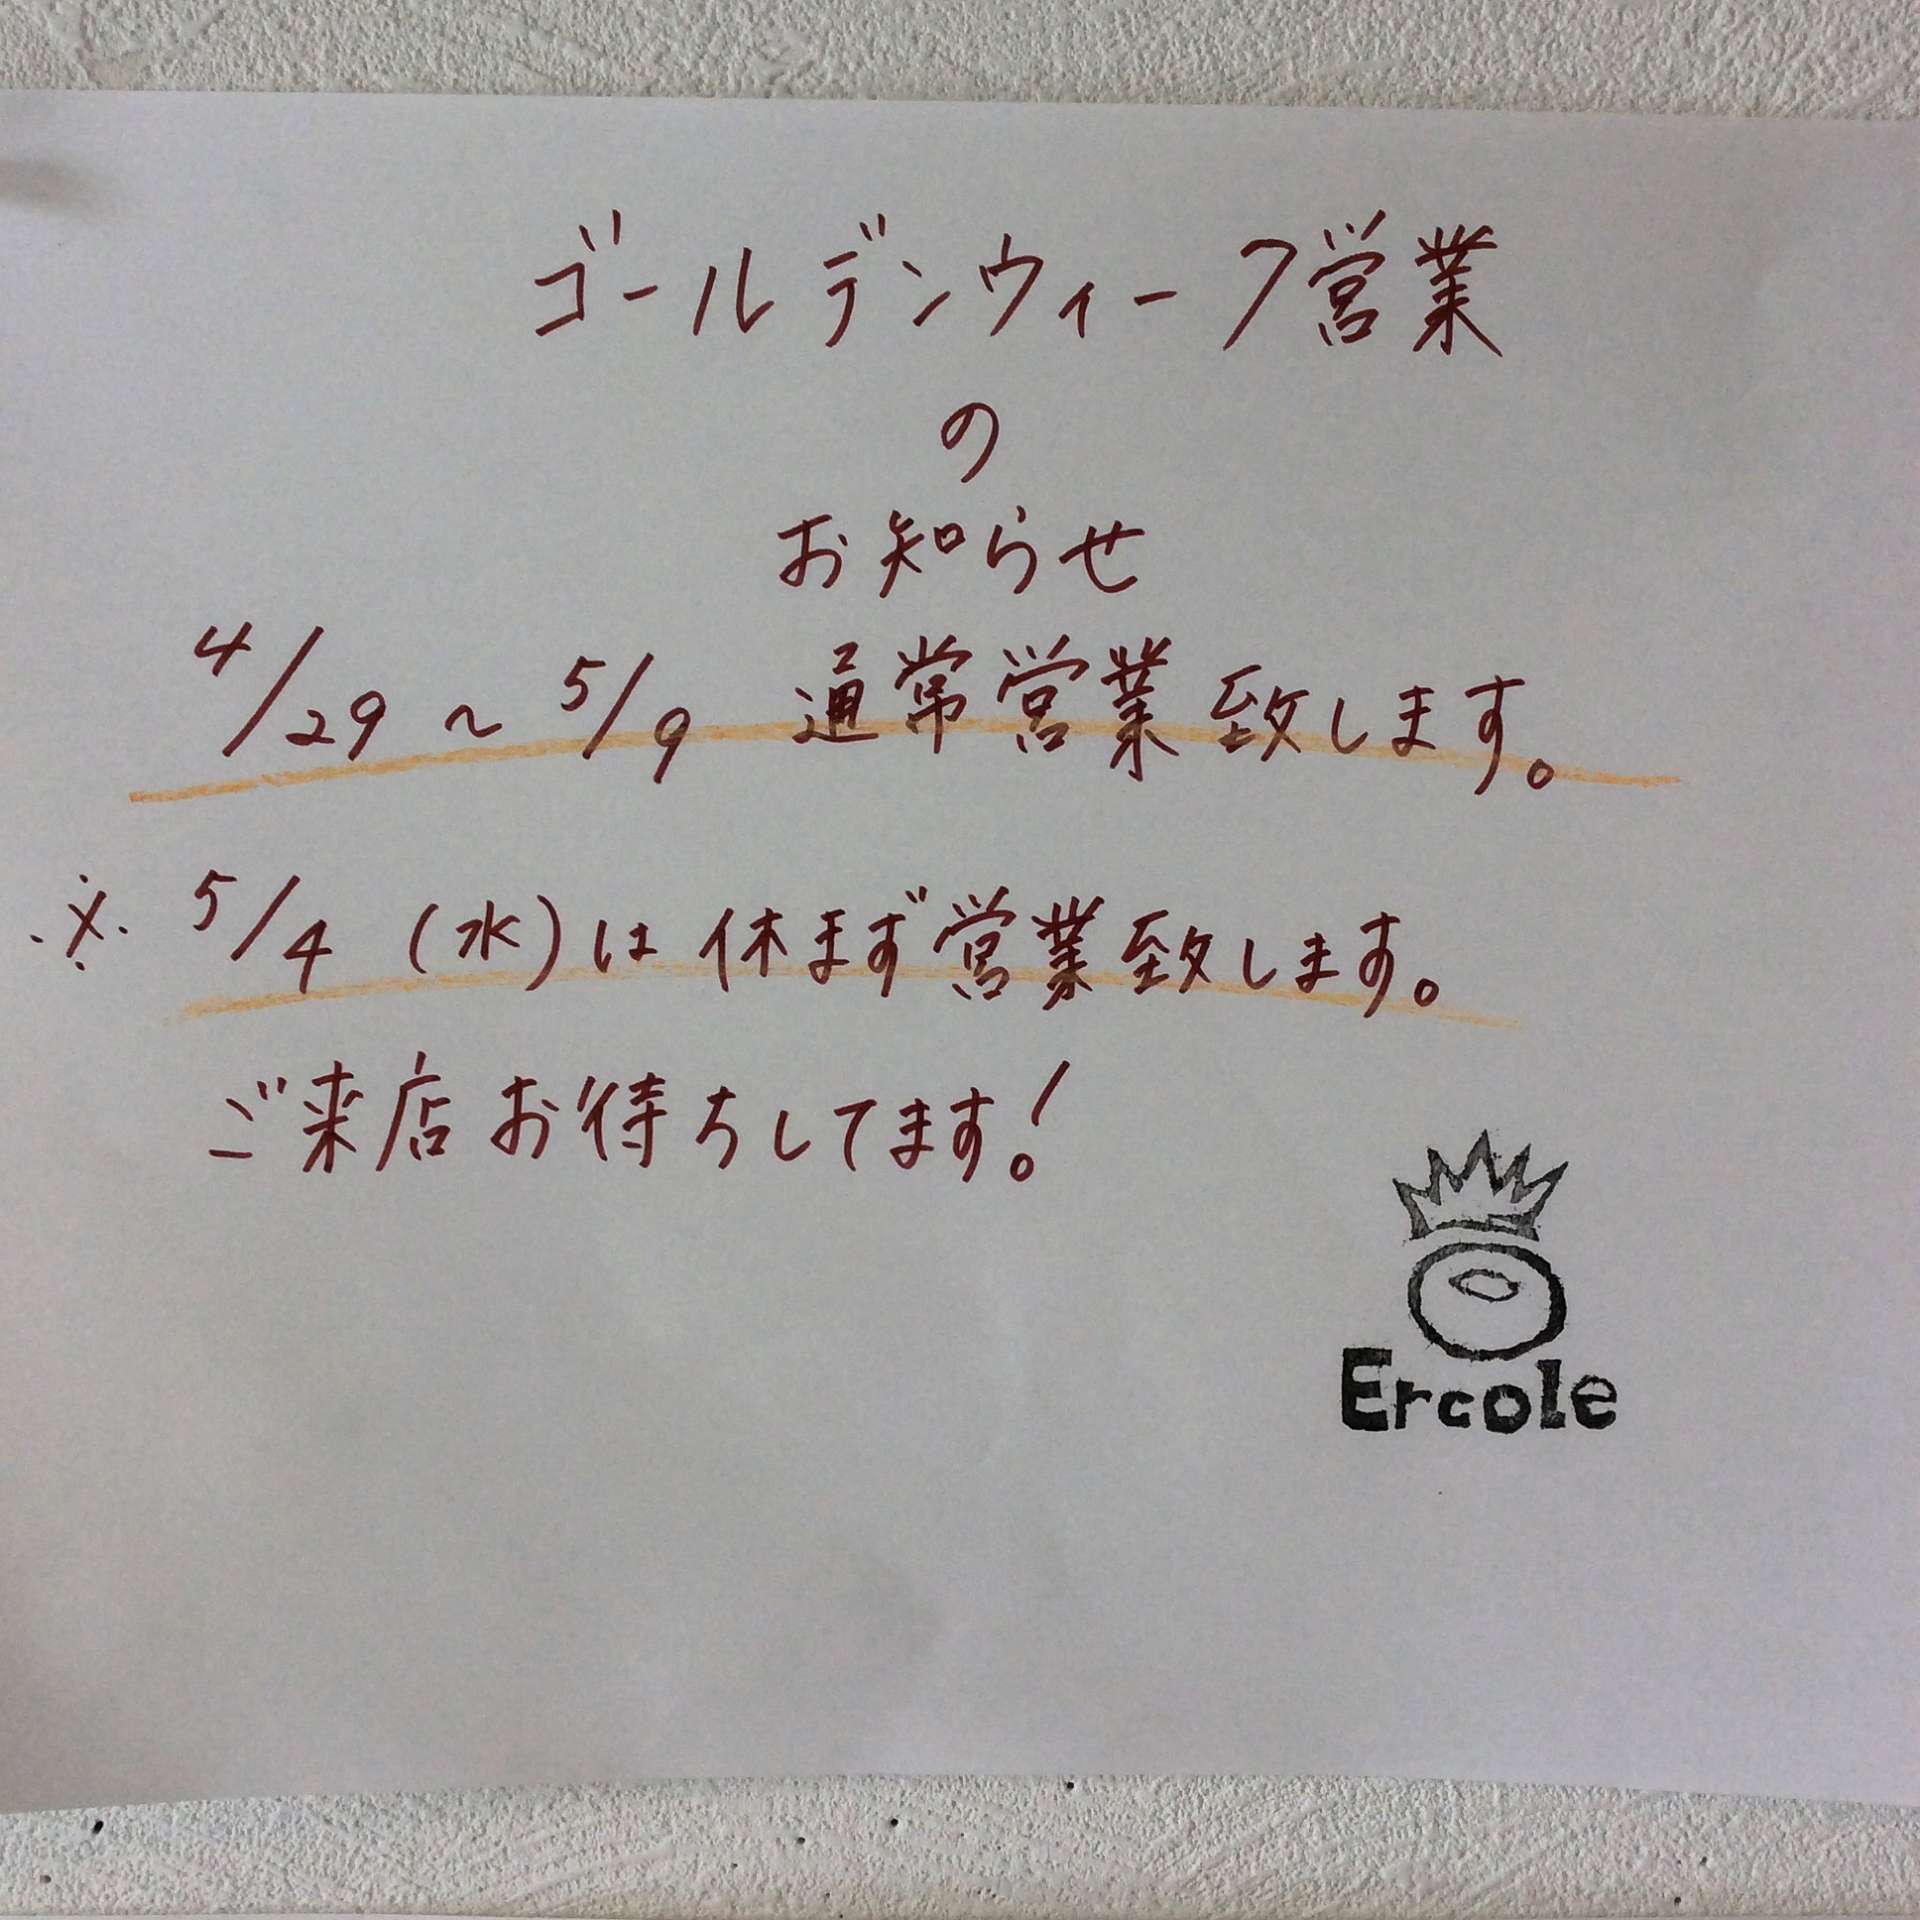 ゴールデンウィーク営業
の
お知らせ
4/29 ～ 5/9 通常営業致します。
※ 5/4 (水)は休まず営業致します。
ご来店お待ちしてます!
Ercole